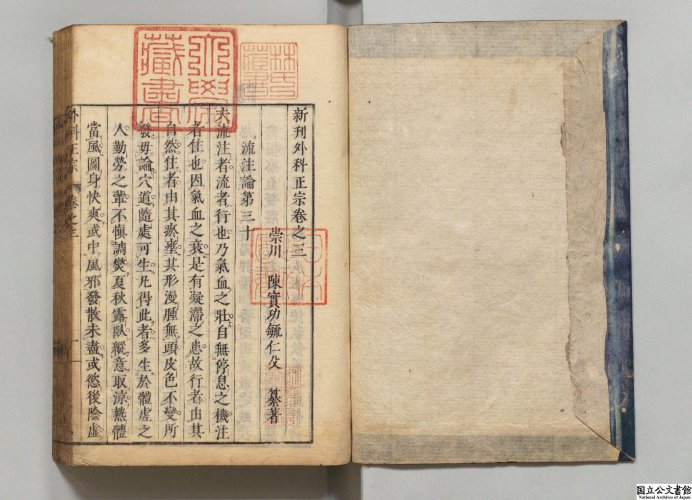 新刊外科正宗卷之三
崇川 陳實功毓仁父 纂著
流注論第三十
夫流注者流者行也乃氣血之壯自無停息之機注
者住也因氣血之衰是有凝滯之患故行者由其
自然住者由其瘀壅其形漫腫無頭皮色不變所
發毋論穴道隨處可生凡得此者多生於體虛之
人勤勞之輩不慎調爕夏秋露臥縱意取涼熱體
當風圖身快爽或中風邪發散未盡或慾後陰虛
外科正宗 卷之三
林氏藏書
藏書
国立公文書館
National Archives of Japan